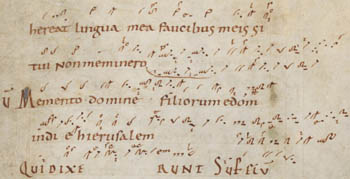 hereat lingua mea faucibus meis si
tui non meminero
V Memento domine filiorum edom
in die hierusalem
QUI DIXE RUNT